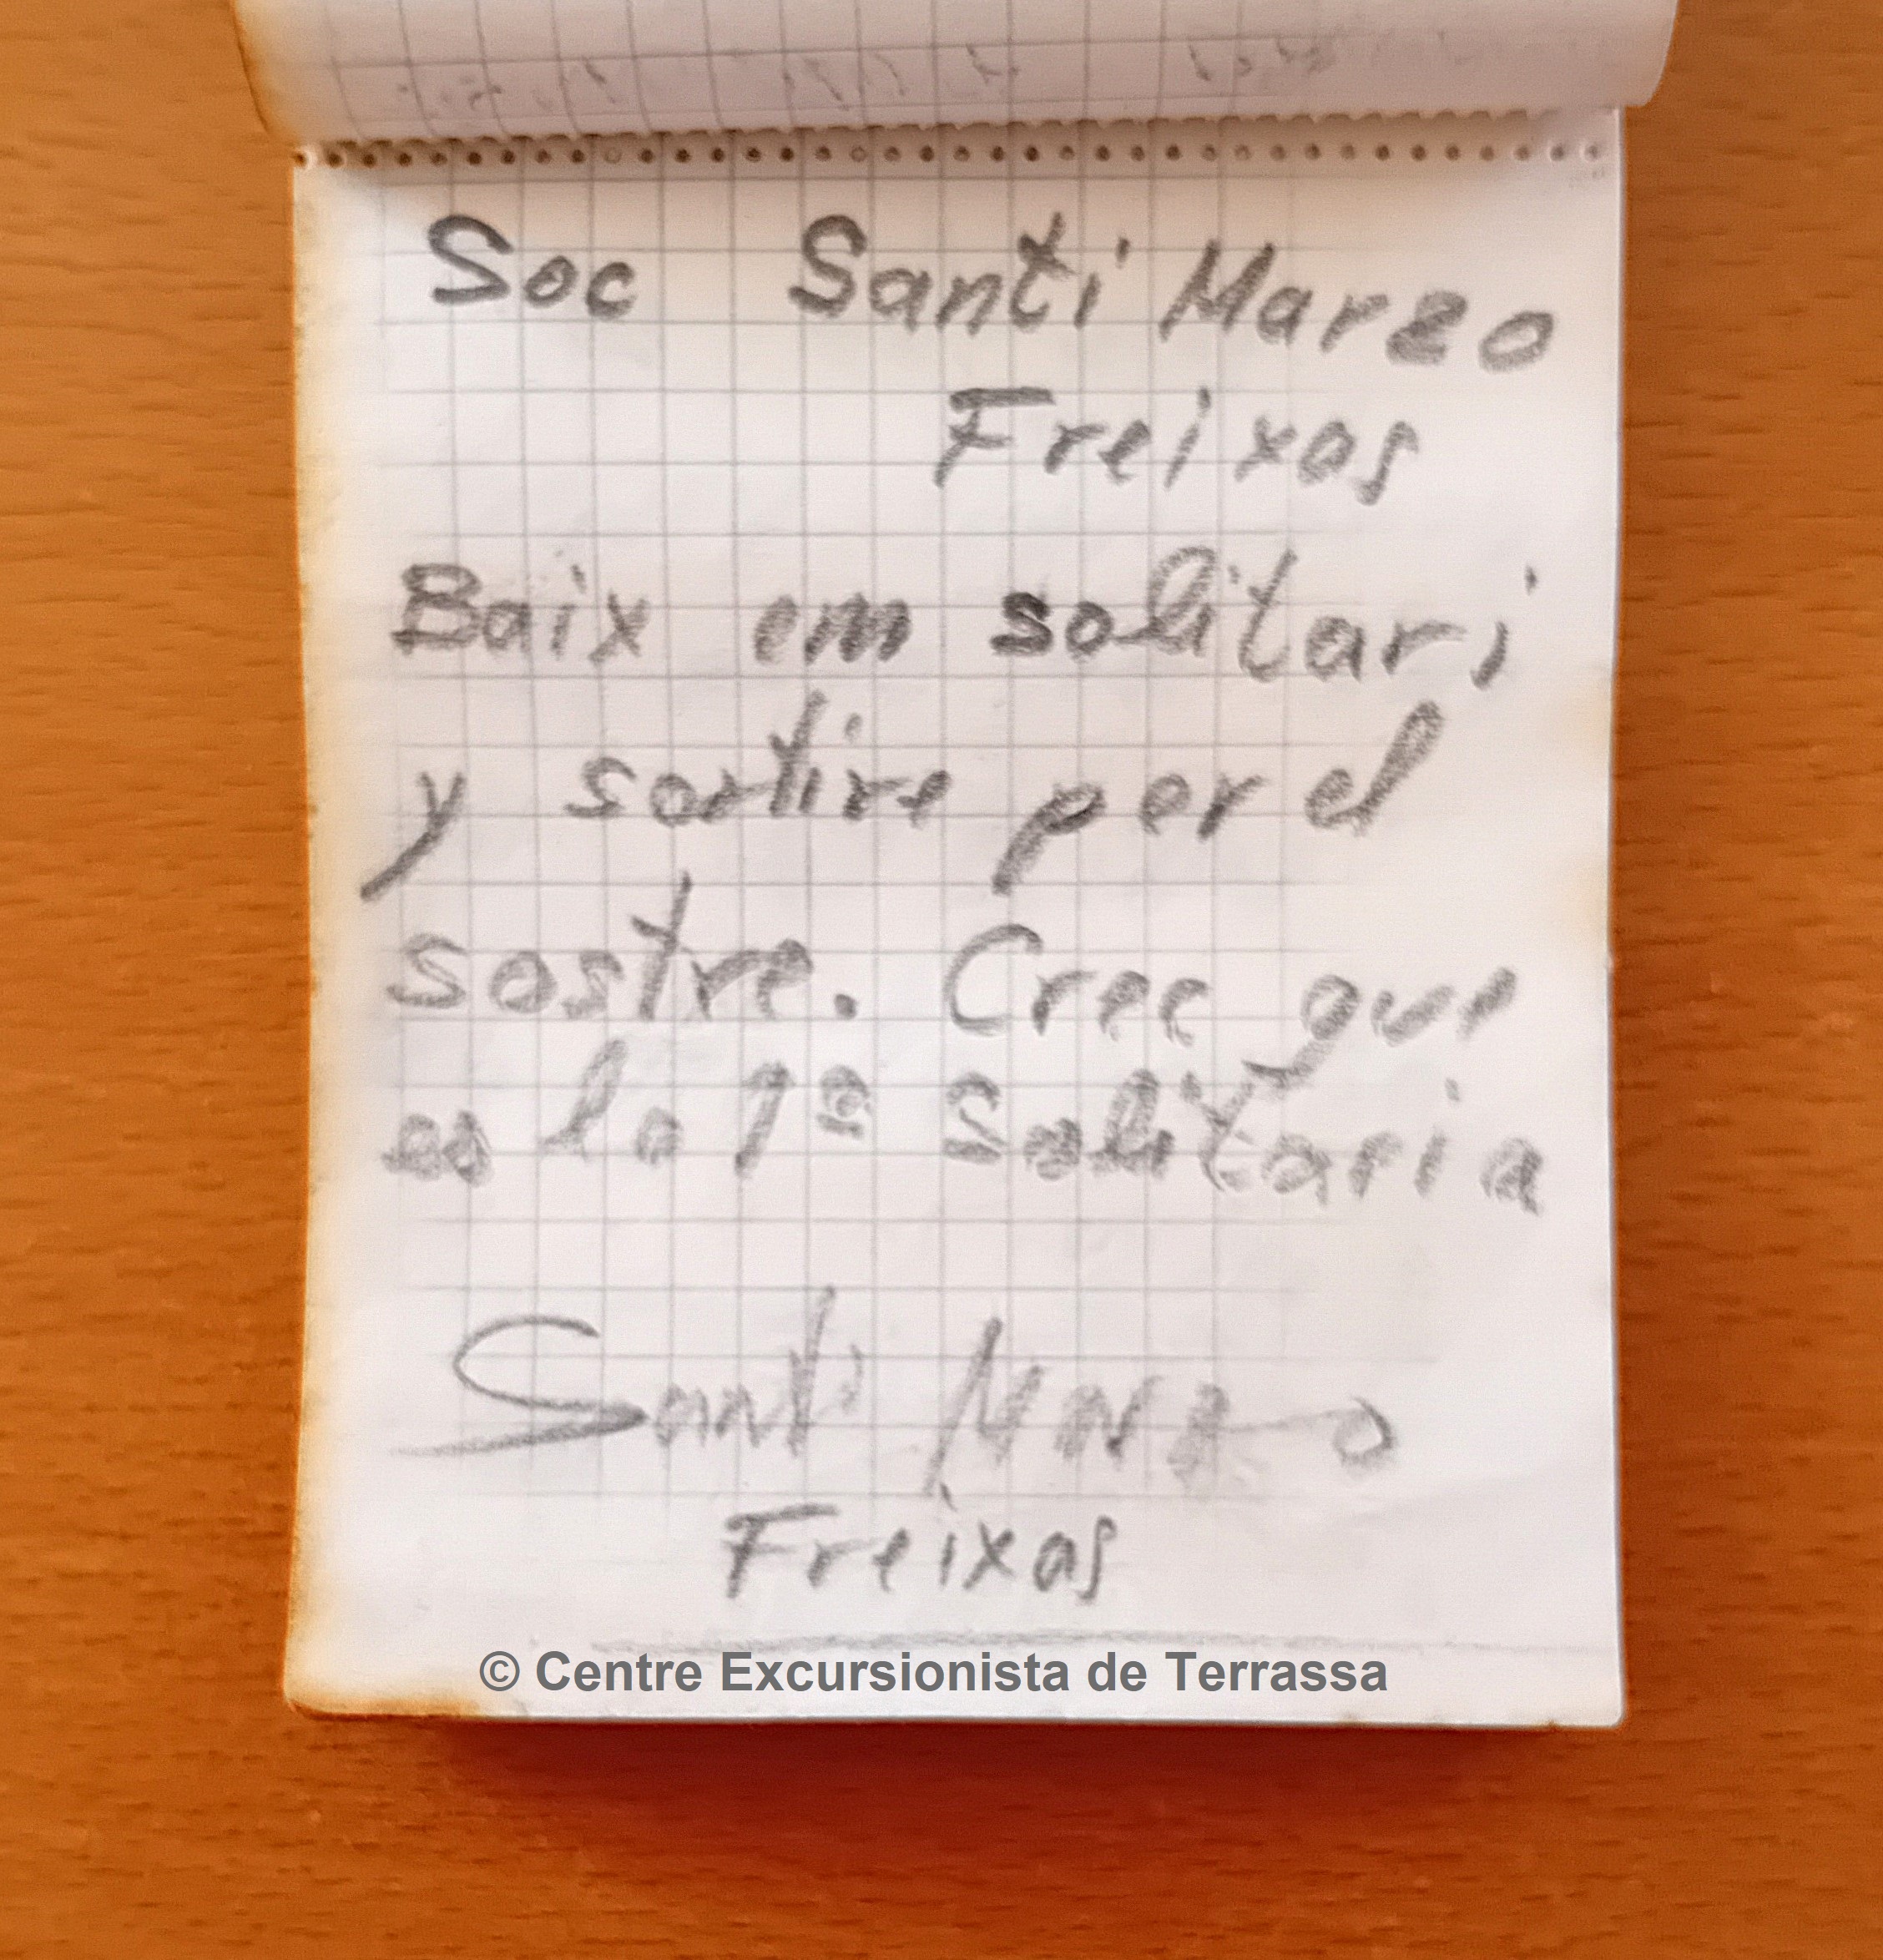 Soc Santi Marzo
Freixas
Baix em solitari
y sortire per el
sostre. Crec que
es la 1ª Solitaria
Santi Marzo
Freixas
© Centre Excursionista de Terrassa